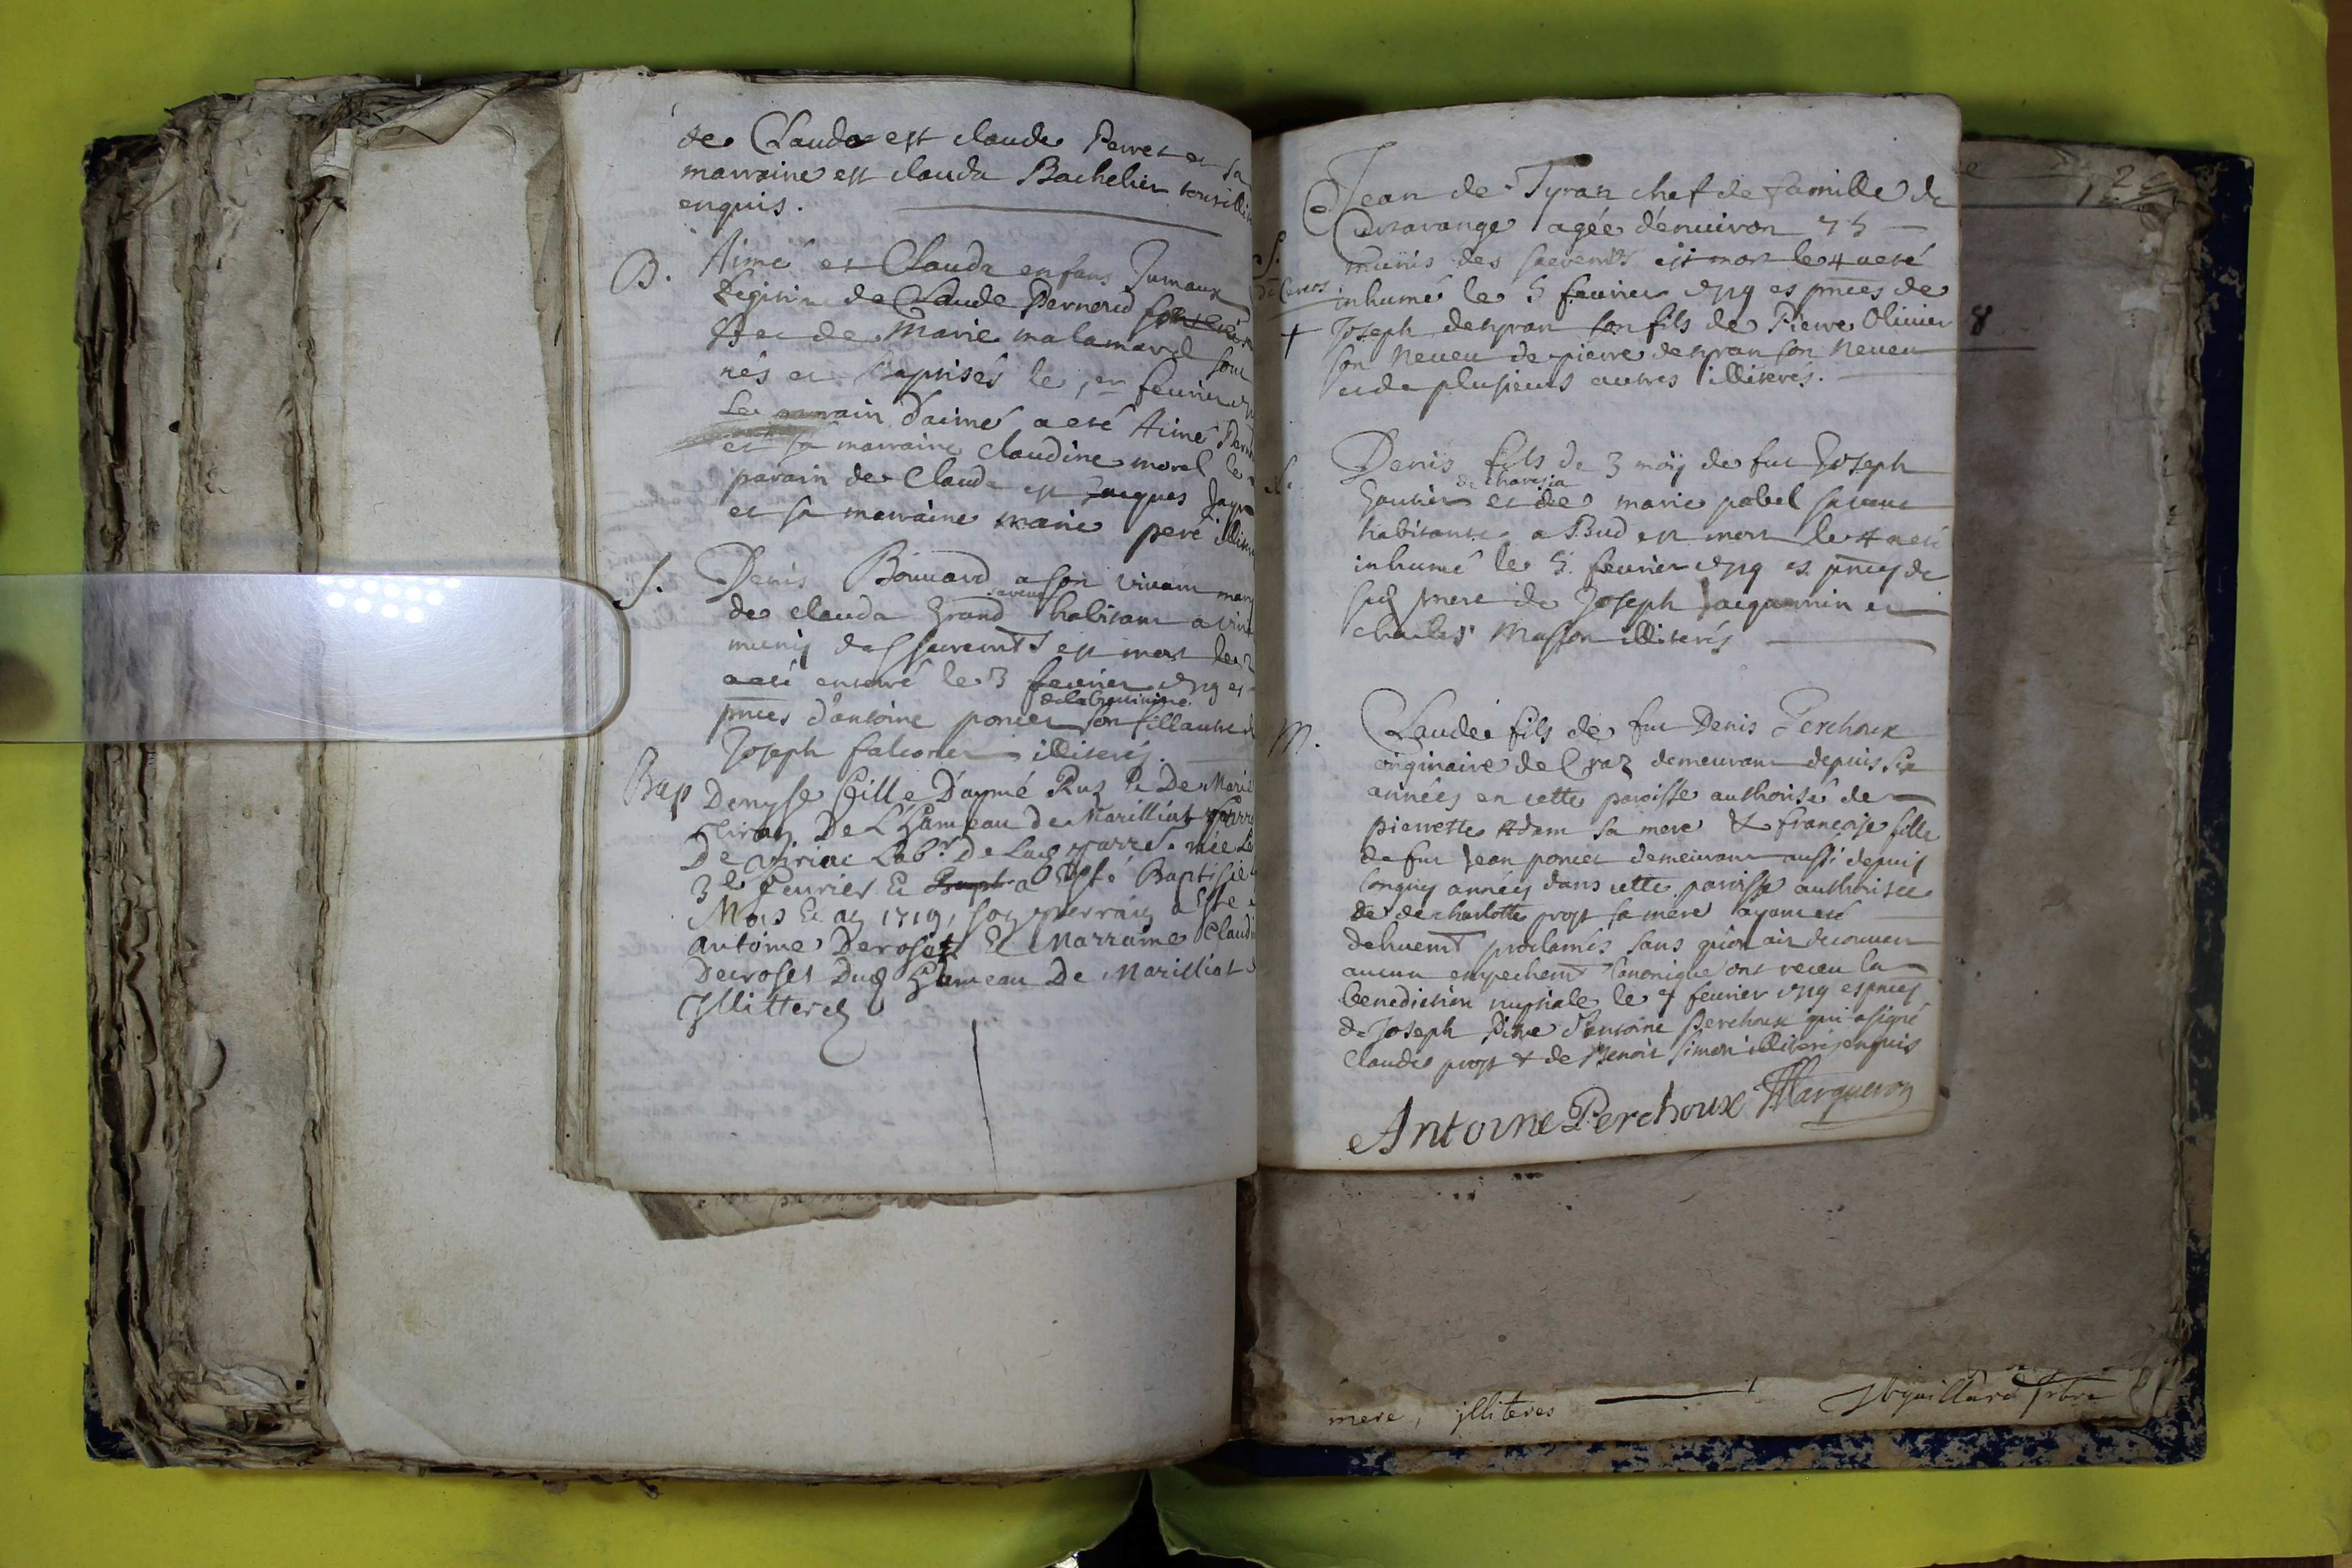 de Clauda est claude Perret et sa
marraine est clauda Bachelier tous illit
enquis.
B. Aimé et Clauda enfans Jumaux
Legitim de Claude Pernoud
et de Marie malamard sont
nés et Baptisés le 1er feurier
Le parrain d'aimé a eté Aimé Pern
et sa marraine claudine morel le
parain de Clauda est Jacques
et sa marraine marie peré illit
S. Denis Bouuard a son viuant mary
de clauda Grand habitant a
munis des sacremts est mort le 2
a eté enterré le 3 feurier 1719 es
pnces d'antoine poncet son fillautre
Joseph falconet illiterés.
Bap Denyse fille D'aymé Ruz & De Marie
De L'Hameau de Marilliat
De Labr. De Lad parre. née Le
3e feurier & a Esté Baptisée
Mois & an 1719, son perrain a Esté
antoine Deroset & Marraine Claud
Decroset Dud Hameau De Marilliat
Jllitterez
Jean de Tyran chef de famille de
agée d'enuiron 75
S. munis des sacremts est mort le 4 a eté
inhumé le 5 feurier 1719 es pnces de
+ Joseph detyran son fils de Pierre Oliuier
son Neueu de pierre detyran son Neueu
et de plusieurs autres illiterés.
Denis fils de 3 mois de fut Joseph
Gautier et de marie pobel sa veuue
habitante a Bud est mort le 4 a eté
inhumé le 5 feurier 1719 es pnces de
sad mere de Joseph Jacquemin et
charles Masson illiterés
M. Claude fils de fut Denis Perchoux
originaire de Craz demeurant depuis six
années en cette paroisse authorisé de
pierrette Adam sa mere & francoise fille
de fut Jean poncet demeurant aussi depuis
longues années dans cette paroisse authorisee
de de charlotte propt sa mere ayant eté
dehuemt proclamés sans qu'on ait decouuert
aucun empechemt Canonique ont receu la
benediction nuptiale le 7 feurier 1719 es pnces
de Joseph Pitre d'antoine Perchoux qui a signé
Claude propt & de Benoit Simon illiterés enquis
Antoine Perchoux Marqueron
mere, jlliteres